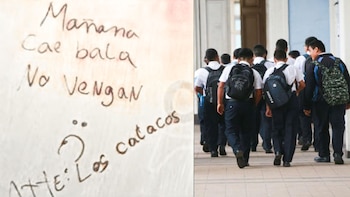 Mañana
Cae bala
No Vengan
Atte: Los catacos